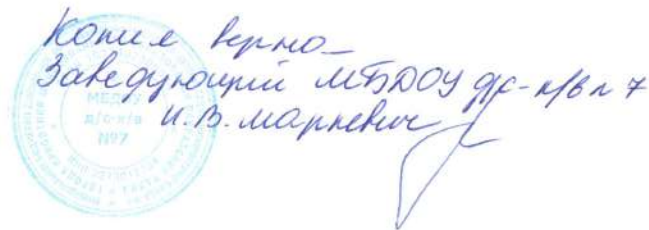 Копия верно
Заведующий МБДОУ д/с-к/в n 7
И.В. Маркевич
МБДОУ
д/с-к/в
№7